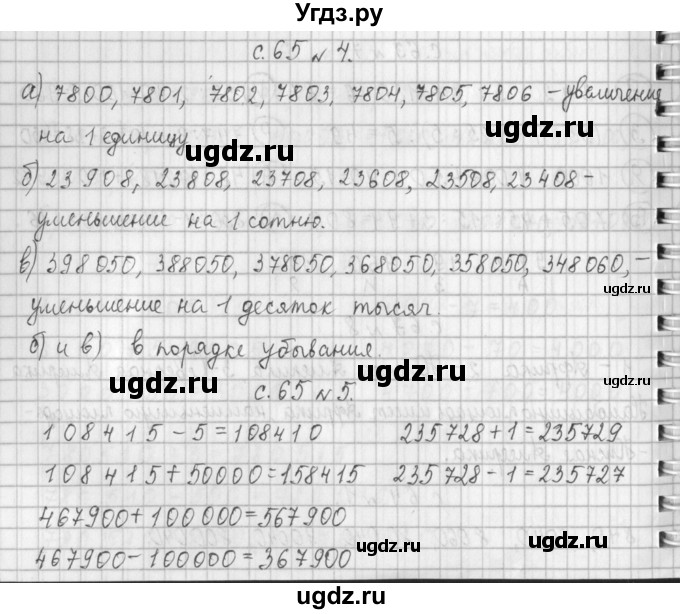 Угдз.ру
с. 65 № 4.
а) 7800, 7801, 7802, 7803, 7804, 7805, 7806 – увеличение
на 1 единицу.
ugdz.ru
ugdz.ru
б) 23 908, 23808, 23708, 23608, 23508, 23408 –
уменьшение на 1 сотню.
в) 398050, 388050, 378050, 368050, 358050, 348060, –
ugdz.ru
уменьшение на 1 десяток тысяч.
б) и в) в порядке убывания.
ugdz.ru
ugdz.ru
с. 65 № 5.
108415 – 5 = 108410 235728 + 1 = 235729
108415 + 50000 = 158415 235728 – 1 = 235727
467900 + 100000 = 567900
ugdz.ru
ugdz.ru
467900 – 100000 = 367900
Угдз.ру